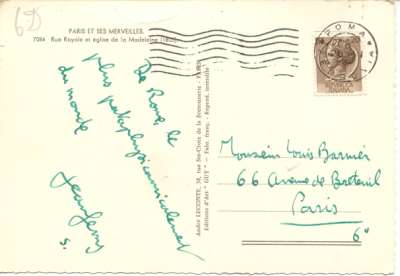 6D
PARIS ET SES MERVEILLES.
7084 Rue Royale et église de la Madeleine
ROMA
De Rome, le
plus pataphysicammicalement
du monde
André LECONTE, 38, rue Ste-Croix de la Bretonnerie - PARIS
Editions d'Art "GUY" - Fabr. franç. - Reprod. interdite
Monsieur Louis Barnier
66 Avenue de Breteuil
Paris
6e